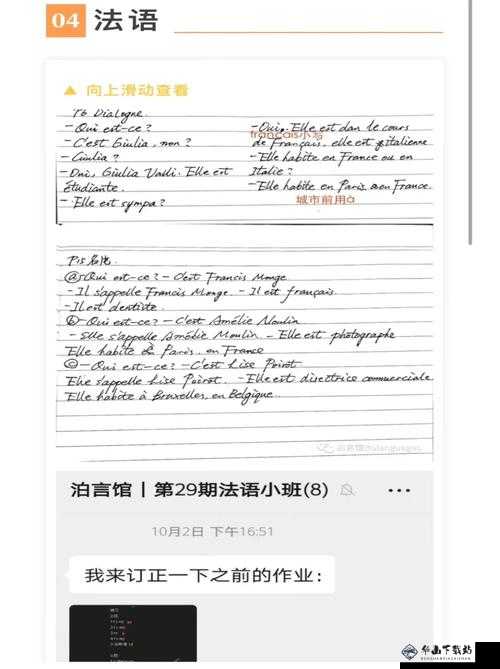 04 法语
▲ 向上滑动查看
T6 Dialogne.
- Qui est-ce?
- C'est Giulia, non?
- Giulia?
- Oui, Giulia Valli. Elle est étudiante.
- Elle est sympa?
- Oui. Elle est dan le cours
français小写
de Français, elle est italienne
- Elle habite en France ou en Italie?
- Elle habite en Paris, en France.
城市前用à
P15
ⓐ Qui est-ce? - C'est Francis Monge
- Il s'appelle Francis Monge. - Il est français.
- Il est dentiste.
ⓑ - Qui est-ce? - C'est Amélie Moulin
- Elle s'appelle Amélie Moulin - Elle est photographe
Elle habite à Paris, en France
ⓒ - Qui est-ce? - C'est Lise Poirot
Elle s'appelle Lise Poirot. - Elle est directrice commerciale
Elle habite à Bruxelles, en Belgique.
泊言馆 | 第29期法语小班(8)
10月2日 下午16:51
我来订正一下之前的作业：
华山下载站